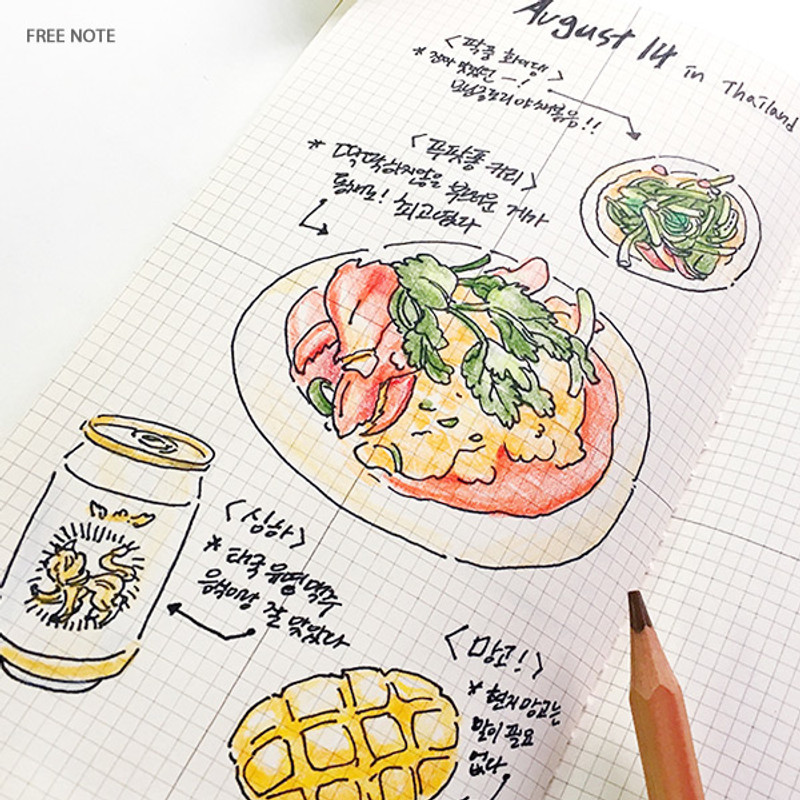 FREE NOTE
August 14 in Thailand
<팍붕 화이댕>
* 진짜 맛있던 ㅡ!
모닝글로리 야채볶음!!
<푸팟퐁 커리>
* 딱딱하지않을 부드러운 게가
통째로! 최고였다
<싱하>
* 태국 유명 맥주
음식이랑 잘 맞았다
<망고!>
* 현지 망고는
말이 필요
없다